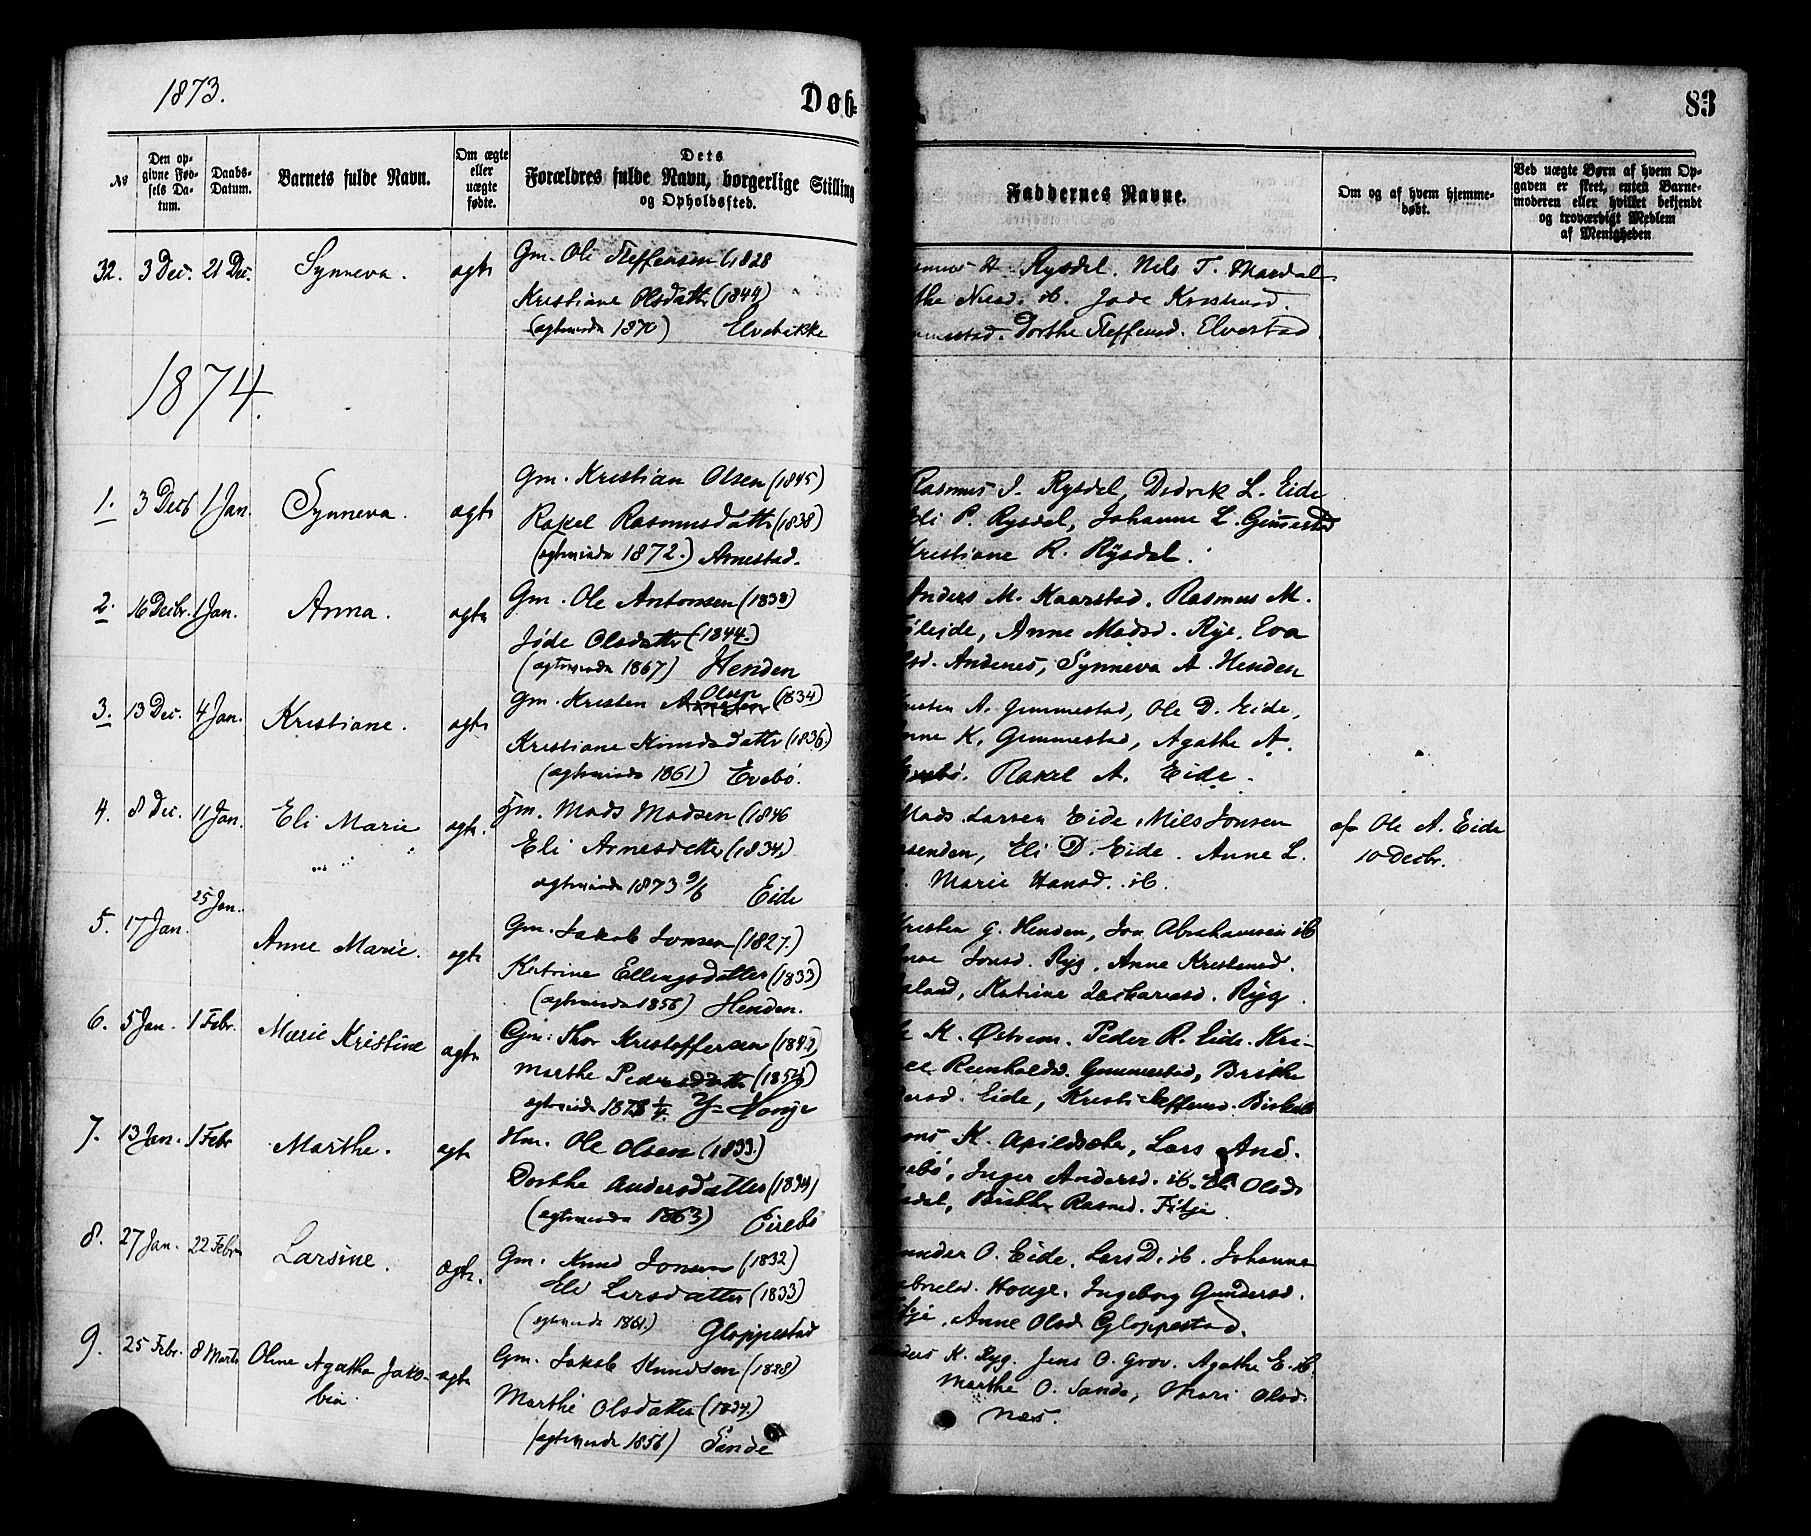 1873.
Døb-
83
No
Den op-
givne Fød-
sels Da-
tum.
Daabs-
Datum.
Barnets fulde Navn.
Om ægte
eller
uægte
fødte.
Dets
Forældres fulde Navn, borgerlige Stilling
og Opholdssted.
Faddernes Navne.
Om og af hvem hjemme-
døbt.
Ved uægte Børn af hvem Op-
gaven er skeet, enten Barne-
moderen eller hvilket bekjendt
og troværdigt Medlem
af Menigheden
32. 3 Dec. 21 Dec. Synneva. ægte Gm. Ole Steffensen (1828
Kristiane Olsdatter (1844)
(ægteviede 1870) Elvebakke
H. Rysdel. Nils T. Mardal
ib.
Dorthe Steffensd. Elvestad
1874.
1. 3 Decb 1 Jan. Synneva. ægte Gm. Kristian Olsen (1845)
Rakel Rasmusdatter (1838)
(ægteviede 1872.) Arnestad.
Rasmus I. Rysdel, Didrik L. Eide
Eli P. Rysdel, Johanne L. Gimmestad
Kristiane R. Rysdel.
2. 16 Decbr. 1 Jan. Anna. ægte Gm. Ole Antonsen (1838)
Jøde Olsdatter (1844.)
(ægteviede 1867) Henden
Anders M. Kaarstad. Rasmus M.
Anne Madsd. Rye. Eva
Andenes, Synneva A. Henden
3. 13 Dec. 4 Jan. Kristiane. ægte Gm. Kristen Olsen (1834)
Kristiane Knudsdatter (1836)
(ægteviede 1861) Evebø.
A. Gimmestad, Ole D. Eide,
K. Gimmestad, Agathe A.
Evebø. Rakel A. Eide.
4. 8 Dec. 11 Jan. Eli Marie ægte. Gm. Mads Madsen (1846
Eli Arnesdatter (1834)
ægteviede 1873 9/6 Eide
Mads Larsen Eide, Nils Jonsen
Eli D. Eide. Anne L.
Marie Hansd. ib.
af Ole A. Eide
10 Decbr.
5. 17 Jan. 25 Jan. Anne Marie. ægte Gm. Jakob Jonsen (1827.)
Katrine Ellingsdatter (1833)
(ægteviede 1856) Henden.
Kristen G. Henden, Jon Abrahamsen ib
Jonsd. Ryg, Anne Kristensd.
Katrine Zachariasd. Ryg.
6. 5 Jan. 1 Febr. Marie Kristine ægte Gm. Thor Kristoffersen
Marthe Pedersdatter
ægteviede Y. Honje
K. Østrem. Peder R. Eide. Kri-
Reinholdsd. Gimmestad, Brithe
Eide, Kristi Steffensd.
7. 13 Jan. 1 Febr Marthe. ægte Hm. Ole Olsen (1833.)
Dorthe Andersdatter (1834)
(ægteviede 1863) Eirebø
K. Apildsæter, Lars And.
Inger Andersd. ib. Eli Olsd.
Brithe Rasmd. Fitje.
8. 27 Jan. 22 Febr Larsine. Ægte. Gm. Knud Jonsen (1832)
Eli Larsdatter (1833)
(ægteviede 1861.) Gloppestad
O. Eide, Lars D. ib. Johanne
Gabrielsd. Honge. Ingeborg Gundersd.
Anne Olsd Gloppestad.
9. 25 Febr. 8 Marts Oline Agathe Jako-
bia ægte Gm. Jakob Knudsen (1828)
Marthe Olsdatter (1834.)
(ægteviede 1856) Sande
K. Ryg. Jens O. Grov. Agathe E. ib.
Marthe O. Sande, Mari Olsd.
Næs.